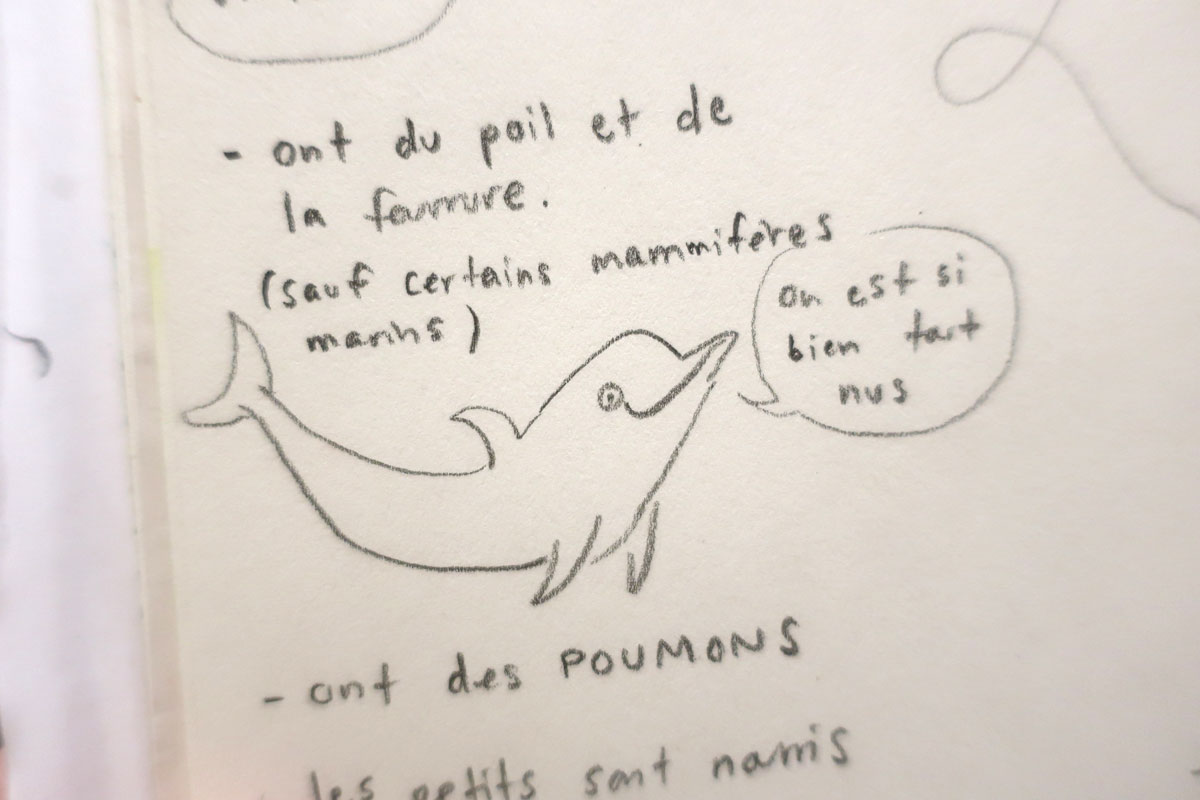 - ont du poil et de
la fourrure.
(sauf certains mammifères
marins)
on est si
bien tout
nus
- ont des POUMONS
les petits sont nourris